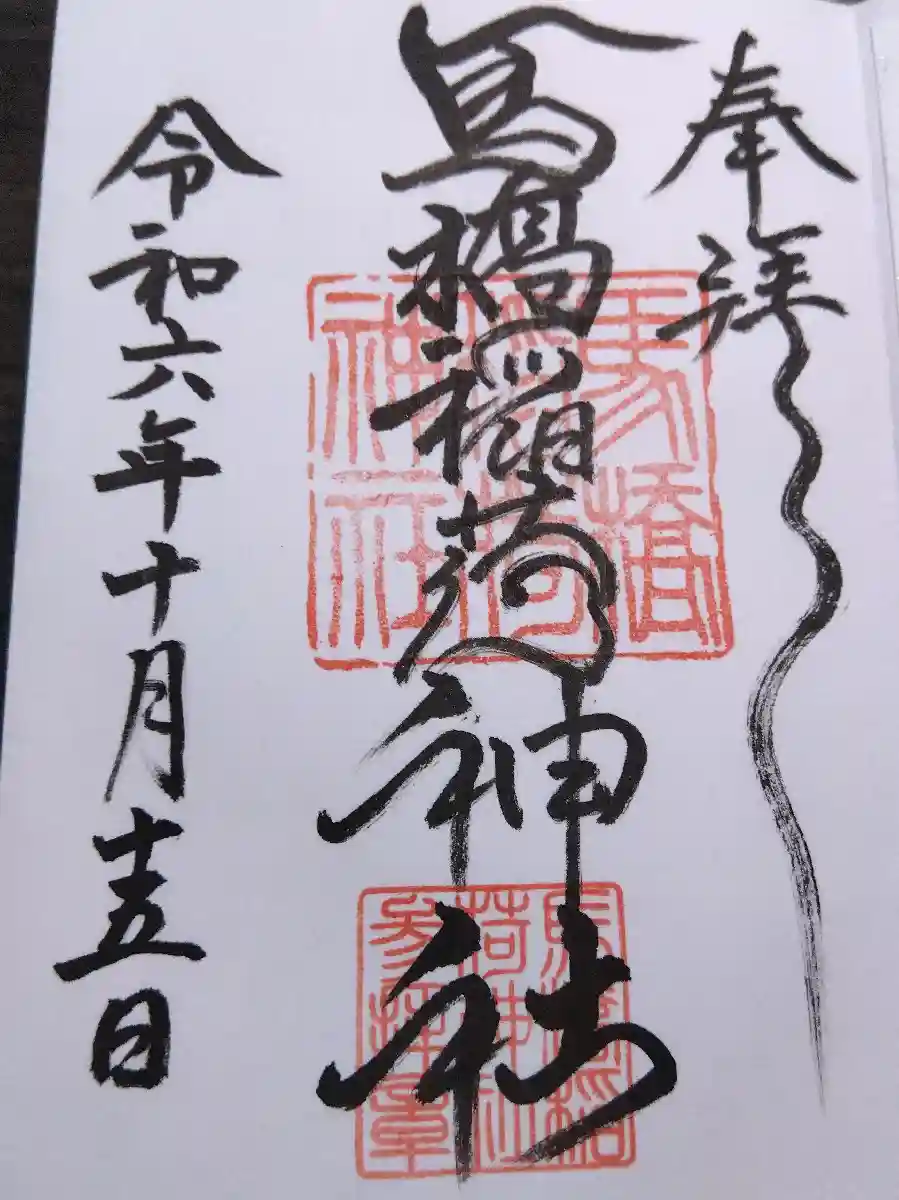 奉拝
馬橋稲荷神社
令和六年十月十五日
馬橋
稲荷
神社
馬橋稲
荷神社
参拝章